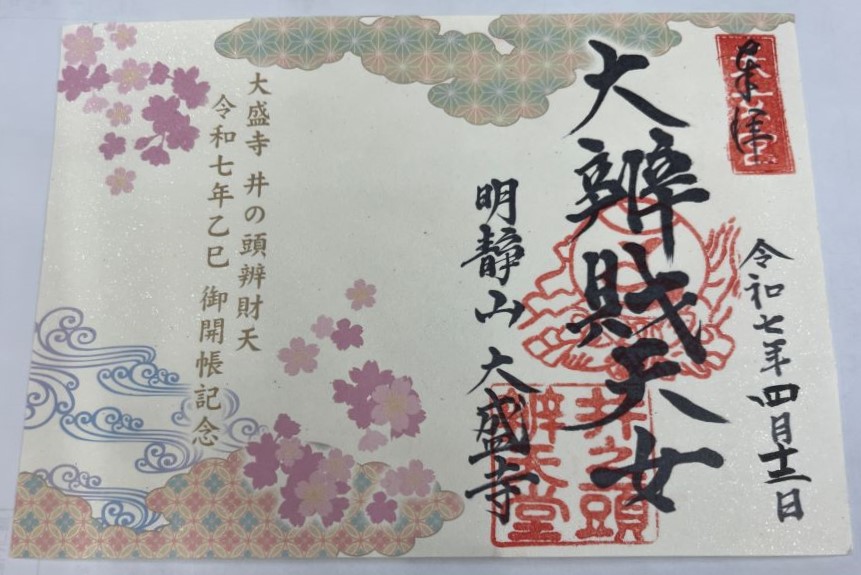 奉拝
令和七年四月十二日
大辨財天女
井之頭
辨天堂
明静山 大盛寺
大盛寺 井の頭辨財天
令和七年乙巳 御開帳記念